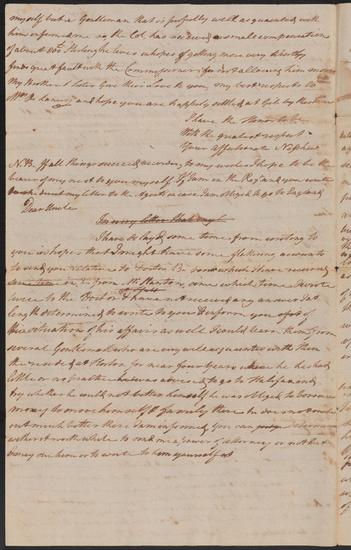 myself but a Gentleman that is perfectly well acquainted with
him informed me the Col. has received a small compensation
of about
finds great fault with the Commissioners for not allowing him more
My Brother & Sister Give their Love to you, my best respects to
and hope you are happily settled at by this time
I have the Honor to be
With the greatest respect
Your Affectionate Nephew
N.B. If all things succeed according to my wishes I hope to be the
bearer of my next to you myself If I am in the Regt and you write
direct my letter to the Agents in case I am Obliged to go to England
Dear Uncle
In my letter that
I have delayed some time from writing to
you in hopes that I might have some flattering accounts
to send you relative to Doctor B. I have received
from Mr. Stanton, since which time I wrote
twice to the Doctor & have not received any answer I at
length determined to write to you & inform you of
the situation of his affairs as well as I could learn them from
several Gentlemen who are very well acquainted with them
he resided at for near four years where he had
little or no practice was advised to go to Halifax and
try whether he could not better himself he was obliged to borrow
money to move himself & family there he does not
out much better there I am informed, you can
whether it worth while to send me a power of attorney or not but
him or to write to him yourself